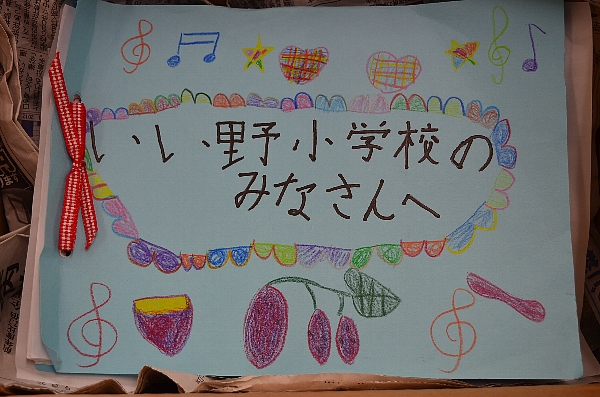 いい野小学校の
みなさんへ